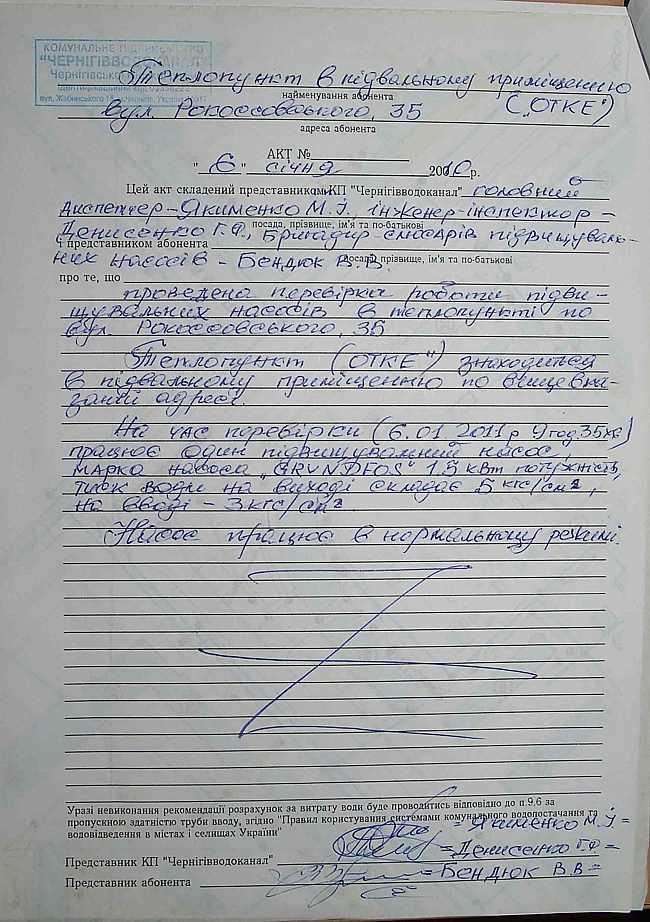 КОМУНАЛЬНЕ ПІДПРИЄМСТВО
"ЧЕРНІГІВВОДОКАНАЛ"
Чернігівської
Ідентифікаційний код 03358222
вул. Жабинського 15, м. Чернігів, Україна,
Теплопункт в підвальному приміщенню
найменування абонента
вул. Рокоссовського, 35 ("ОТКЕ")
адреса абонента
АКТ №
" 6 " січня 2010 р.
Цей акт складений представником КП "Чернігівводоканал" головний
диспетчер – Якименко М.І., інженер-інспектор –
посада, прізвище, ім'я та по-батькові
Денисенко Г.Ф., бригадир слюсарів підвищуваль-
і представником абонента
них насосів – Бендюк В.В.
посада, прізвище, ім'я та по-батькові
про те, що
проведена перевірка роботи підви-
щувальних насосів в теплопункті по
вул. Рокоссовського, 35
Теплопункт ("ОТКЕ") знаходиться
в підвальному приміщенню по вищевка-
заній адресі.
На час перевірки (6.01 2011 р 9 год 35 хв)
працює один підвищувальний насос,
марка насоса "GRUNDFOS" 1,5 кВт потужність,
тиск води на виході складає 5 кгс/см²,
на вводі – 3 кгс/см²
Насос працює в нормальному режимі.
Уразі невиконання рекомендації розрахунок за витрату води буде проводитись відповідно до п.9.6 за
пропускною здатністю труби вводу, згідно "Правил користування системами комунального водопостачання та
водовідведення в містах і селищах України"
– Якименко М.І. –
– Денисенко Г.Ф. –
Представник КП "Чернігівводоканал"
– Бендюк В.В –
Представник абонента